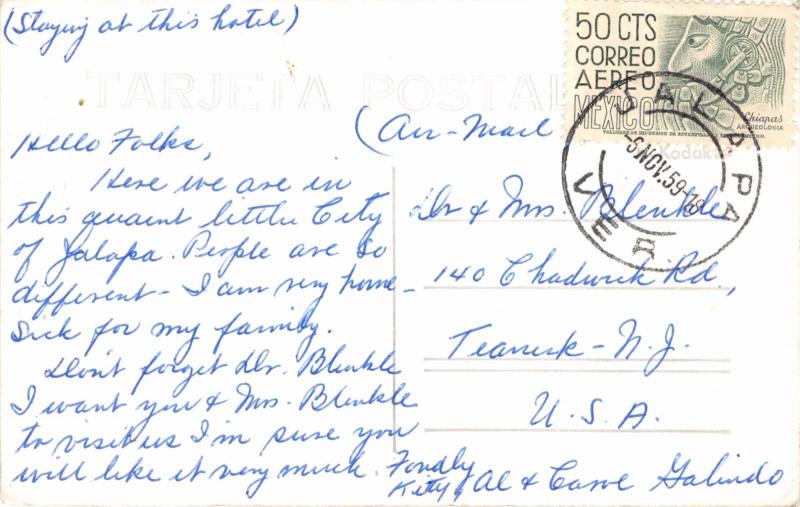 (Staying at this hotel)
TARJETA POSTAL
50 CTS
CORREO
AEREO
MEXICO
Chiapas
ARQUEOLOGIA
JALAPA
-6 NOV. 59-18
VER.
Kodak
(Air-Mail
Hello Folks,
Here we are in
this quaint little City
of Jalapa. People are so
different - I am very home-
sick for my family.
Don't forget Dr. Blenkle
I want you & Mrs. Blenkle
to visit us I'm sure you
will like it very much. Fondly
Kitty, Al & Galindo
Dr & Mrs. Blenkle
140 Chadwick Rd.,
Teaneck - N.J.
U.S.A.